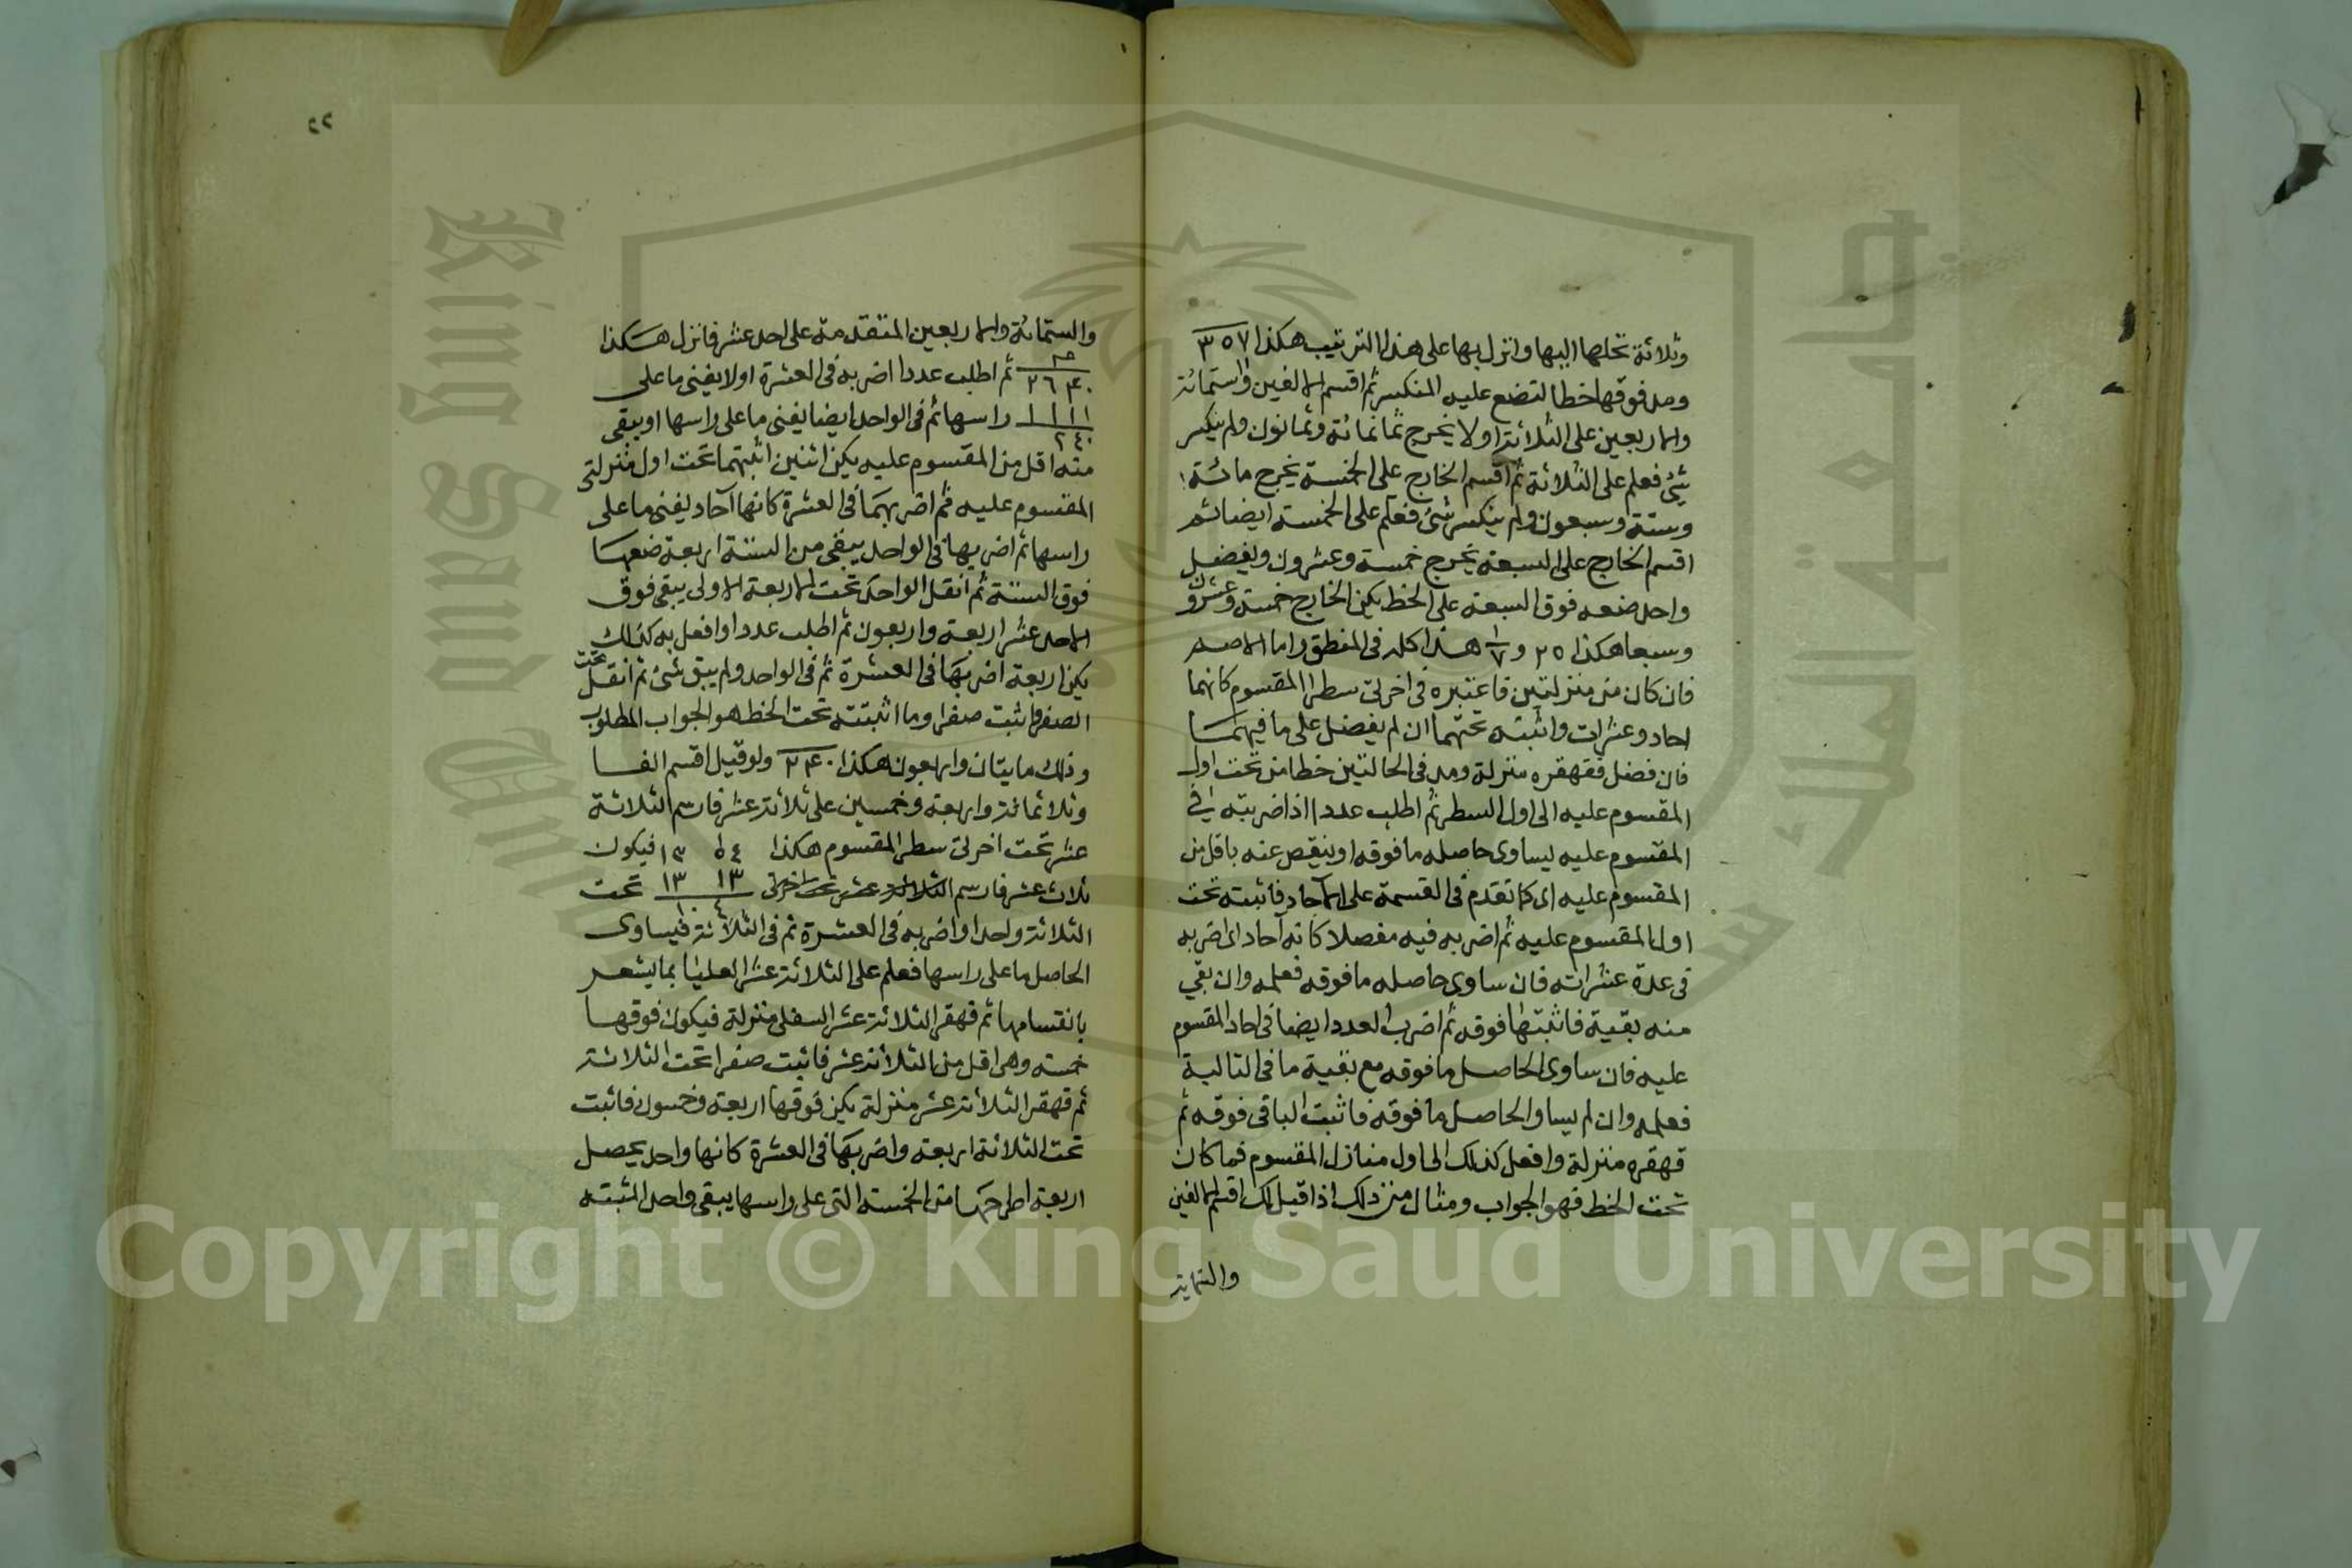 وثلاثة تحلها اليها وانزل بها على هذا الترتيب هكذا ٣٥٧
ومد فوقها خطا لتضع عليه المنكسر ثم اقسم الالفين والستمائة
والاربعين على الثلاثة اولا يخرج ثمانمائة وثمانون ولم ينكسر
شئ فعلم على الثلاثة ثم اقسم الخارج على الخمسة يخرج مائة
وستة وسبعون ولم ينكسر شئ فعلم على الخمسة ايضا ثم
اقسم الخارج على السبعة يخرج خمسة وعشرون ويفضل
واحد ضعه فوق السبعة على الخط يكن الخارج خمسة وعشرون
وسبعا هكذا ٢٥ و ١/٧ هذا كله فى المنطق واما الاصم
فان كان من منزلتين فاعتبره فى اخرتى سطر المقسوم كانهما
احاد وعشرات واثبته تحتهما ان لم يفضل على ما فيهما
فان فضل فقهقره منزلة ومد فى الحالتين خطا من تحت اول
المقسوم عليه الى اول السطر ثم اطلب عددا اذا ضربته فى
المقسوم عليه ليساوى حاصله ما فوقه او ينقص عنه باقل من
المقسوم عليه اى كما تقدم فى القسمة على الآحاد فاثبته تحت
اول المقسوم عليه ثم اضربه فيه مفصلا كانه آحاد اى اضربه
فى عدة عشراته فان ساوى حاصله ما فوقه فعلمه وان بقى
منه بقية فاثبتها فوقه ثم اضرب العدد ايضا فى احاد المقسوم
عليه فان ساوى الحاصل ما فوقه مع بقية ما فى التالية
فعلمه وان لم يساو الحاصل ما فوقه فاثبت الباقى فوقه ثم
قهقره منزلة وافعل كذلك الى اول منازل المقسوم فما كان
تحت الخط فهو الجواب ومثال من ذلك اذا قيل لك اقسم الالفين
والستماية
٢٢
والستمائة والاربعين المتقدمة على احد عشر فانزل هكذا
٢٦٤٠ ثم اطلب عددا اضربه فى العشرة اولا يفنى ما على
١١١١ راسها ثم فى الواحد ايضا يفنى ما على راسها او يبقى
٢٤٠
منه اقل من المقسوم عليه يكن اثنين اثبتهما تحت اول منزلتى
المقسوم عليه ثم اضربهما فى العشرة كانها آحاد يفنى ما على
راسها ثم اضربها فى الواحد يبقى من الستة اربعة ضعها
فوق الستة ثم انقل الواحد تحت الاربعة الاولى يبقى فوق
الاحد عشر اربعة واربعون ثم اطلب عددا وافعل به كذلك
يكن اربعة اضربها فى العشرة ثم فى الواحد ولم يبق شئ ثم انقل تحت
الصفر فاثبت صفرا وما اثبتته تحت الخط هو الجواب المطلوب
وذلك مايتان واربعون هكذا ٢٤٠ ولو قيل اقسم الفا
وثلاثمائة واربعة وخمسين على ثلاثة عشر فارسم الثلاثة
عشر تحت اخرتى سطر المقسوم هكذا ١٣٥٤ فيكون
ثلاث عشر فارسم الثلاثة عشر تحت اخرتى ١٣ ١٣ تحت
الثلاثة واحدا واضربه فى العشرة ثم فى الثلاثة فيساوى
الحاصل ما على راسها فعلم على الثلاثة عشر العليا بما يشعر
بانقسامها ثم قهقر الثلاثة عشر السفلى منزلة فيكون فوقها
خمسة وهى اقل من الثلاثة عشر فاثبت صفرا تحت الثلاثة
ثم قهقر الثلاثة عشر منزلة يكن فوقها اربعة وخمسون فاثبت
تحت الثلاثة اربعة واضربها فى العشرة كانها واحد يحصل
اربعة اطرحها من الخمسة التى على راسها يبقى واحد اثبته
King Saud University
جامعة الملك سعود
Copyright © King Saud University